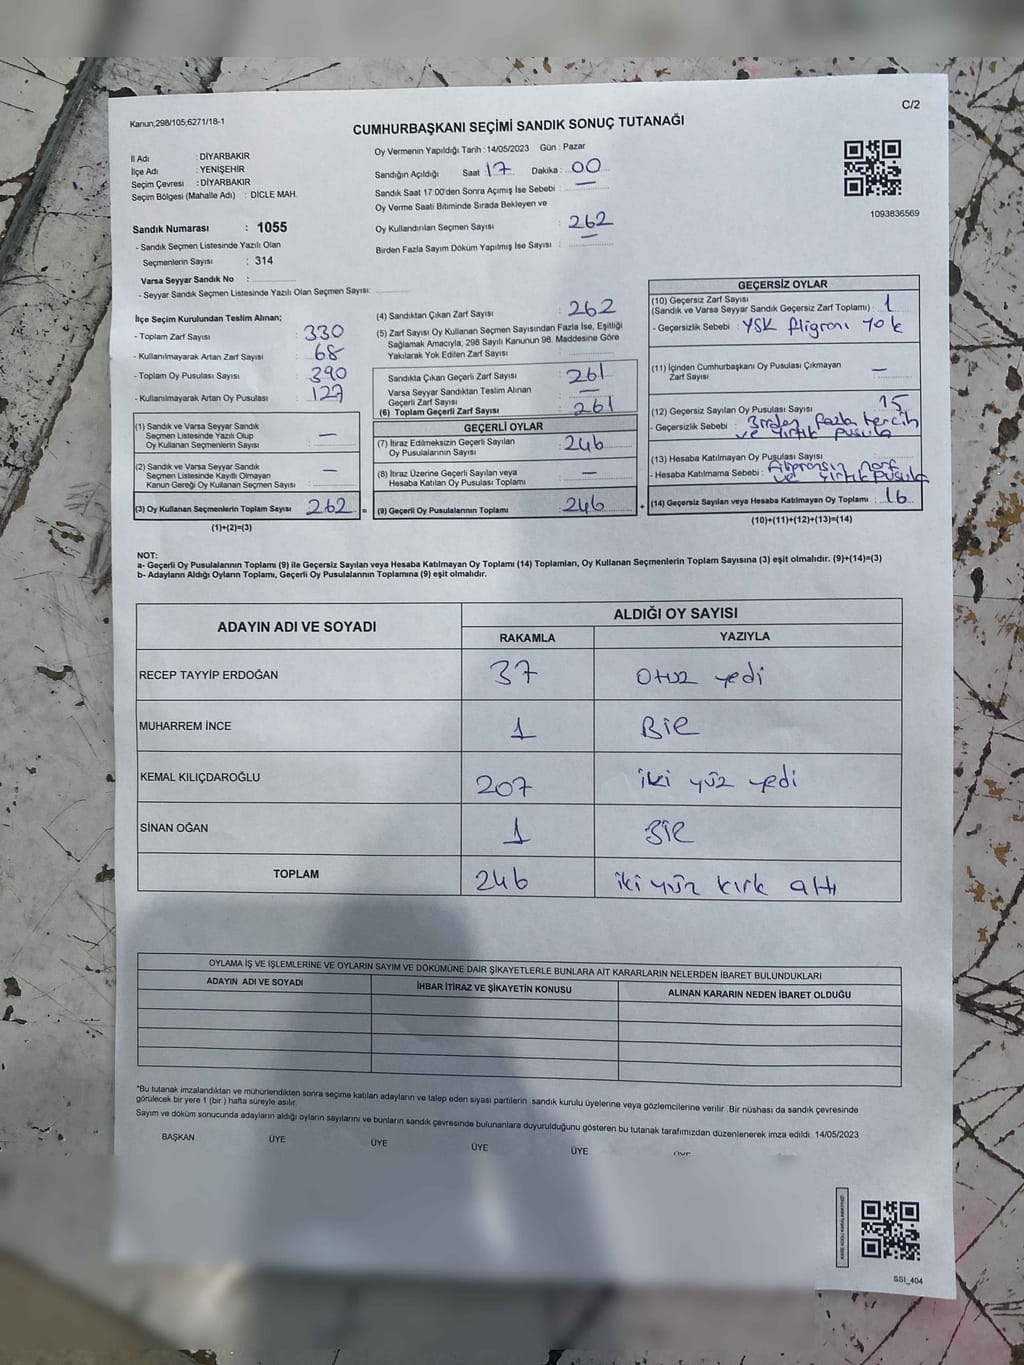 Kanun;298/105;6271/18-1
C/2
CUMHURBAŞKANI SEÇİMİ SANDIK SONUÇ TUTANAĞI
İl Adı : DİYARBAKIR
İlçe Adı : YENİŞEHİR
Seçim Çevresi : DİYARBAKIR
Seçim Bölgesi (Mahalle Adı) : DİCLE MAH.
Oy Vermenin Yapıldığı Tarih : 14/05/2023 Gün : Pazar
Sandığın Açıldığı Saat 17 Dakika : 00
Sandık Saat 17:00'den Sonra Açımış İse Sebebi : —
Oy Verme Saati Bitiminde Sırada Bekleyen ve
Oy Kullandırılan Seçmen Sayısı : 262
Birden Fazla Sayım Döküm Yapılmış İse Sayısı : —
1093836569
Sandık Numarası : 1055
- Sandık Seçmen Listesinde Yazılı Olan
Seçmenlerin Sayısı : 314
Varsa Seyyar Sandık No :
- Seyyar Sandık Seçmen Listesinde Yazılı Olan Seçmen Sayısı:
İlçe Seçim Kurulundan Teslim Alınan;
- Toplam Zarf Sayısı : 330
- Kullanılmayarak Artan Zarf Sayısı : 68
- Toplam Oy Pusulası Sayısı : 390
- Kullanılmayarak Artan Oy Pusulası : 127
(1) Sandık ve Varsa Seyyar Sandık
Seçmen Listesinde Yazılı Olup
Oy Kullanan Seçmenlerin Sayısı : —
(2) Sandık ve Varsa Seyyar Sandık
Seçmen Listesinde Kayıtlı Olmayan
Kanun Gereği Oy Kullanan Seçmen Sayısı : —
(3) Oy Kullanan Seçmenlerin Toplam Sayısı : 262 =
(1)+(2)=(3)
(4) Sandıktan Çıkan Zarf Sayısı : 262
(5) Zarf Sayısı Oy Kullanan Seçmen Sayısından Fazla İse, Eşitliği
Sağlamak Amacıyla; 298 Sayılı Kanunun 98. Maddesine Göre
Yakılarak Yok Edilen Zarf Sayısı :
Sandıkta Çıkan Geçerli Zarf Sayısı : 261
Varsa Seyyar Sandıktan Teslim Alınan
Geçerli Zarf Sayısı : —
(6) Toplam Geçerli Zarf Sayısı : 261
GEÇERLİ OYLAR
(7) İtiraz Edilmeksizin Geçerli Sayılan
Oy Pusulalarının Sayısı : 246
(8) İtiraz Üzerine Geçerli Sayılan veya
Hesaba Katılan Oy Pusulası Toplamı : —
(9) Geçerli Oy Pusulalarının Toplamı : 246 +
GEÇERSİZ OYLAR
(10) Geçersiz Zarf Sayısı
(Sandık ve Varsa Seyyar Sandık Geçersiz Zarf Toplamı) : 1
- Geçersizlik Sebebi : YSK filigranı yok
(11) İçinden Cumhurbaşkanı Oy Pusulası Çıkmayan
Zarf Sayısı : —
(12) Geçersiz Sayılan Oy Pusulası Sayısı : 15
- Geçersizlik Sebebi : Birden fazla tercih
ve yırtık pusula
(13) Hesaba Katılmayan Oy Pusulası Sayısı :
- Hesaba Katılmama Sebebi : ve yırtık pusula
(14) Geçersiz Sayılan veya Hesaba Katılmayan Oy Toplamı : 16
(10)+(11)+(12)+(13)=(14)
NOT:
a- Geçerli Oy Pusulalarının Toplamı (9) ile Geçersiz Sayılan veya Hesaba Katılmayan Oy Toplamı (14) Toplamları, Oy Kullanan Seçmenlerin Toplam Sayısına (3) eşit olmalıdır. (9)+(14)=(3)
b- Adayların Aldığı Oyların Toplamı, Geçerli Oy Pusulalarının Toplamına (9) eşit olmalıdır.
ADAYIN ADI VE SOYADI
ALDIĞI OY SAYISI
RAKAMLA YAZIYLA
RECEP TAYYİP ERDOĞAN 37 Otuz yedi
MUHARREM İNCE 1 BİR
KEMAL KILIÇDAROĞLU 207 iki yüz yedi
SİNAN OĞAN 1 BİR
TOPLAM 246 iki yüz kırk altı
OYLAMA İŞ VE İŞLEMLERİNE VE OYLARIN SAYIM VE DÖKÜMÜNE DAİR ŞİKAYETLERLE BUNLARA AİT KARARLARIN NELERDEN İBARET BULUNDUKLARI
ADAYIN ADI VE SOYADI İHBAR İTİRAZ VE ŞİKAYETİN KONUSU ALINAN KARARIN NEDEN İBARET OLDUĞU
"Bu tutanak imzalandıktan ve mühürlendikten sonra seçime katılan adayların ve talep eden siyasi partilerin sandık kurulu üyelerine veya gözlemcilerine verilir. Bir nüshası da sandık çevresinde
görülecek bir yere 1 (bir ) hafta süreyle asılır.
Sayım ve döküm sonucunda adayların aldığı oyların sayılarını ve bunların sandık çevresinde bulunanlara duyurulduğunu gösteren bu tutanak tarafımızdan düzenlenerek imza edildi. 14/05/2023
BAŞKAN ÜYE ÜYE ÜYE ÜYE ÜYE
SSI_404